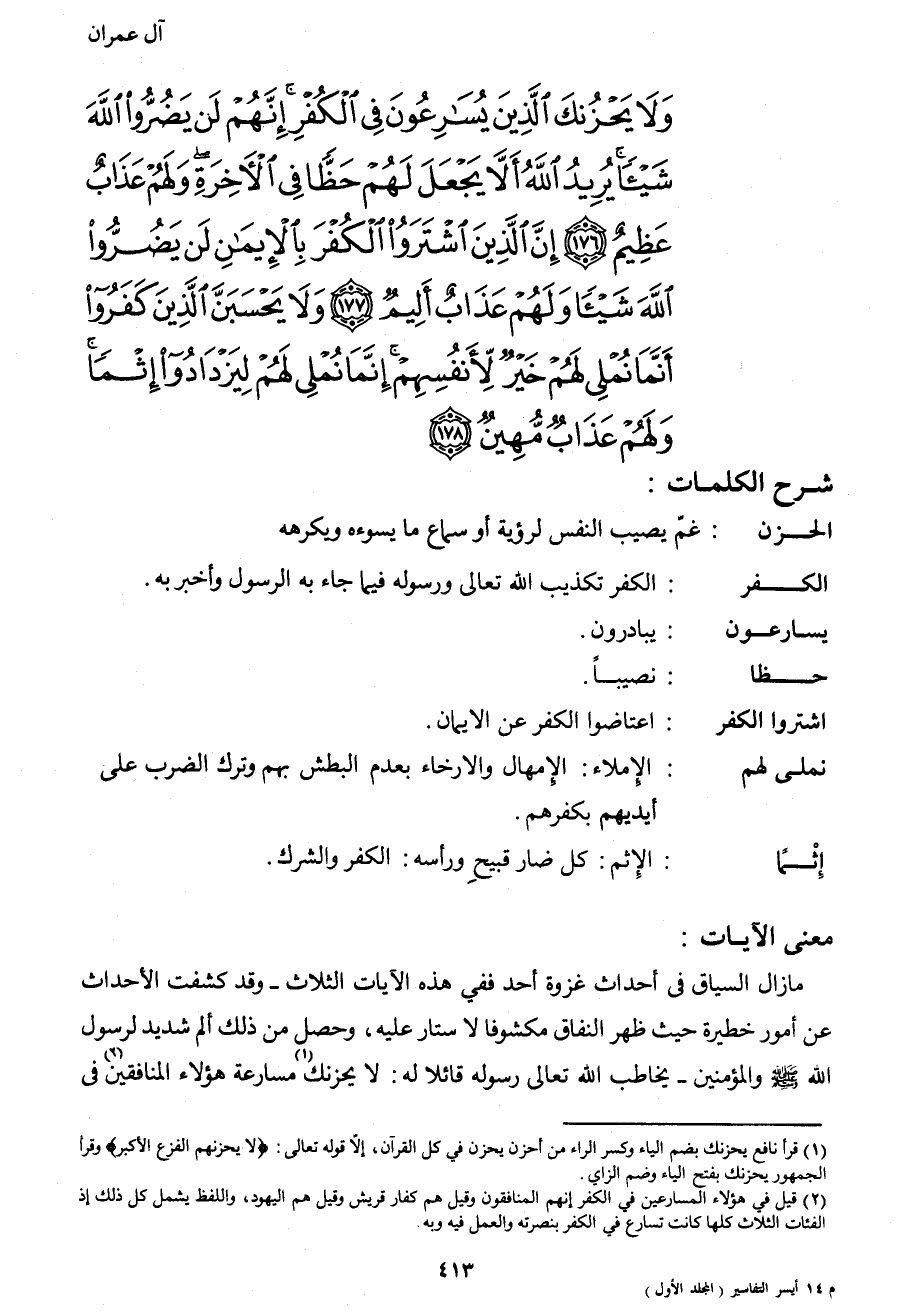 آل عمران
وَلَا يَحْزُنكَ ٱلَّذِينَ يُسَٰرِعُونَ فِى ٱلْكُفْرِ ۚ إِنَّهُمْ لَن يَضُرُّوا۟ ٱللَّهَ
شَيْـًٔا ۗ يُرِيدُ ٱللَّهُ أَلَّا يَجْعَلَ لَهُمْ حَظًّا فِى ٱلْـَٔاخِرَةِ ۖ وَلَهُمْ عَذَابٌ
عَظِيمٌ ﴿١٧٦﴾ إِنَّ ٱلَّذِينَ ٱشْتَرَوُا۟ ٱلْكُفْرَ بِٱلْإِيمَٰنِ لَن يَضُرُّوا۟
ٱللَّهَ شَيْـًٔا وَلَهُمْ عَذَابٌ أَلِيمٌ ﴿١٧٧﴾ وَلَا يَحْسَبَنَّ ٱلَّذِينَ كَفَرُوٓا۟
أَنَّمَا نُمْلِى لَهُمْ خَيْرٌ لِّأَنفُسِهِمْ ۚ إِنَّمَا نُمْلِى لَهُمْ لِيَزْدَادُوٓا۟ إِثْمًا ۚ
وَلَهُمْ عَذَابٌ مُّهِينٌ ﴿١٧٨﴾
شـرح الكلمـات :
الحـزن : غمّ يصيب النفس لرؤية أو سماع ما يسوءه ويكرهه
الكـفر : الكفر تكذيب الله تعالى ورسوله فيما جاء به الرسول وأخبر به .
يسـارعـون : يبادرون .
حـظا : نصيبـاً .
اشتروا الكفر : اعتاضوا الكفر عن الايمان .
نملـى لهم : الإملاء : الإمهال والارخاء بعدم البطش بهم وترك الضرب على
أيديهم بكفرهم .
إِثْـمًا : الإثم : كل ضار قبيحٍ ورأسه : الكفر والشرك .
معنى الآيـات :
مازال السياق فى أحداث غزوة أحد ففي هذه الآيات الثلاث ـ وقد كشفت الأحداث
عن أمور خطيرة حيث ظهر النفاق مكشوفا لا ستار عليه ، وحصل من ذلك ألم شديد لرسول
الله ﷺ والمؤمنين ـ يخاطب الله تعالى رسوله قائلا له : لا يحزنك(١) مسارعة هؤلاء المنافقين(٢) فى
(١) قرأ نافع يحزنك بضم الياء وكسر الراء من أحزن يحزن في كل القرآن ، إلّا قوله تعالى : ﴿لا يحزنهم الفزع الأكبر﴾ وقرأ
الجمهور يحزنك بفتح الياء وضم الزاي .
(٢) قيل في هؤلاء المسارعين في الكفر إنهم المنافقون وقيل هم كفار قريش وقيل هم اليهود ، واللفظ يشمل كل ذلك إذ
الفئات الثلاث كلها كانت تسارع في الكفر بنصرته والعمل فيه وبه .
٤١٣
م ١٤ أيسر التفاسير ( المجلد الأول )